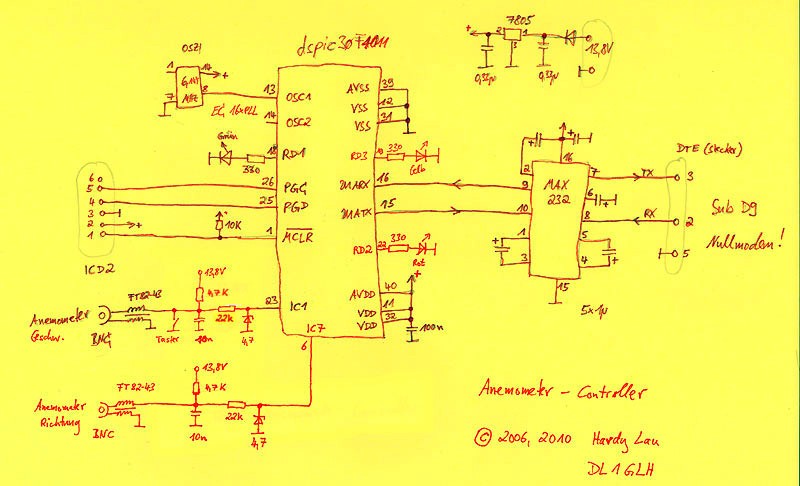 dspic30F4011
7805
2
1
3
+
13,8V
0,33µ
0,33µ
OSZ1
1
14
+
7
8
13
OSC1
EC 16xPLL
14
OSC2
Grün
330
RD1
6
5
4
3
2
+
1
ICD2
26
PGC
25
PGD
10K
1
MCLR
AVSS
39
VSS
12
VSS
31
RD3
330
Gelb
16
15
10
9
RD2
22
330
Rot
AVDD
40
+
VDD
11
VDD
32
100n
MAX
232
2
16
7
TX
3
6
8
RX
2
1
5
3
4
15
5
5x1µ
DTE (Stecker)
Sub D9
Nullmodem!
Anemometer
Geschw.
BNC
FT82-43
13,8V
4,7K
Taster
10n
22k
4,7
23
IC1
IC7
6
Anemometer
Richtung
BNC
FT82-43
13,8V
4,7K
10n
22k
4,7
Anemometer - Controller
© 2006, 2010 Hardy Lau
DL1GLH